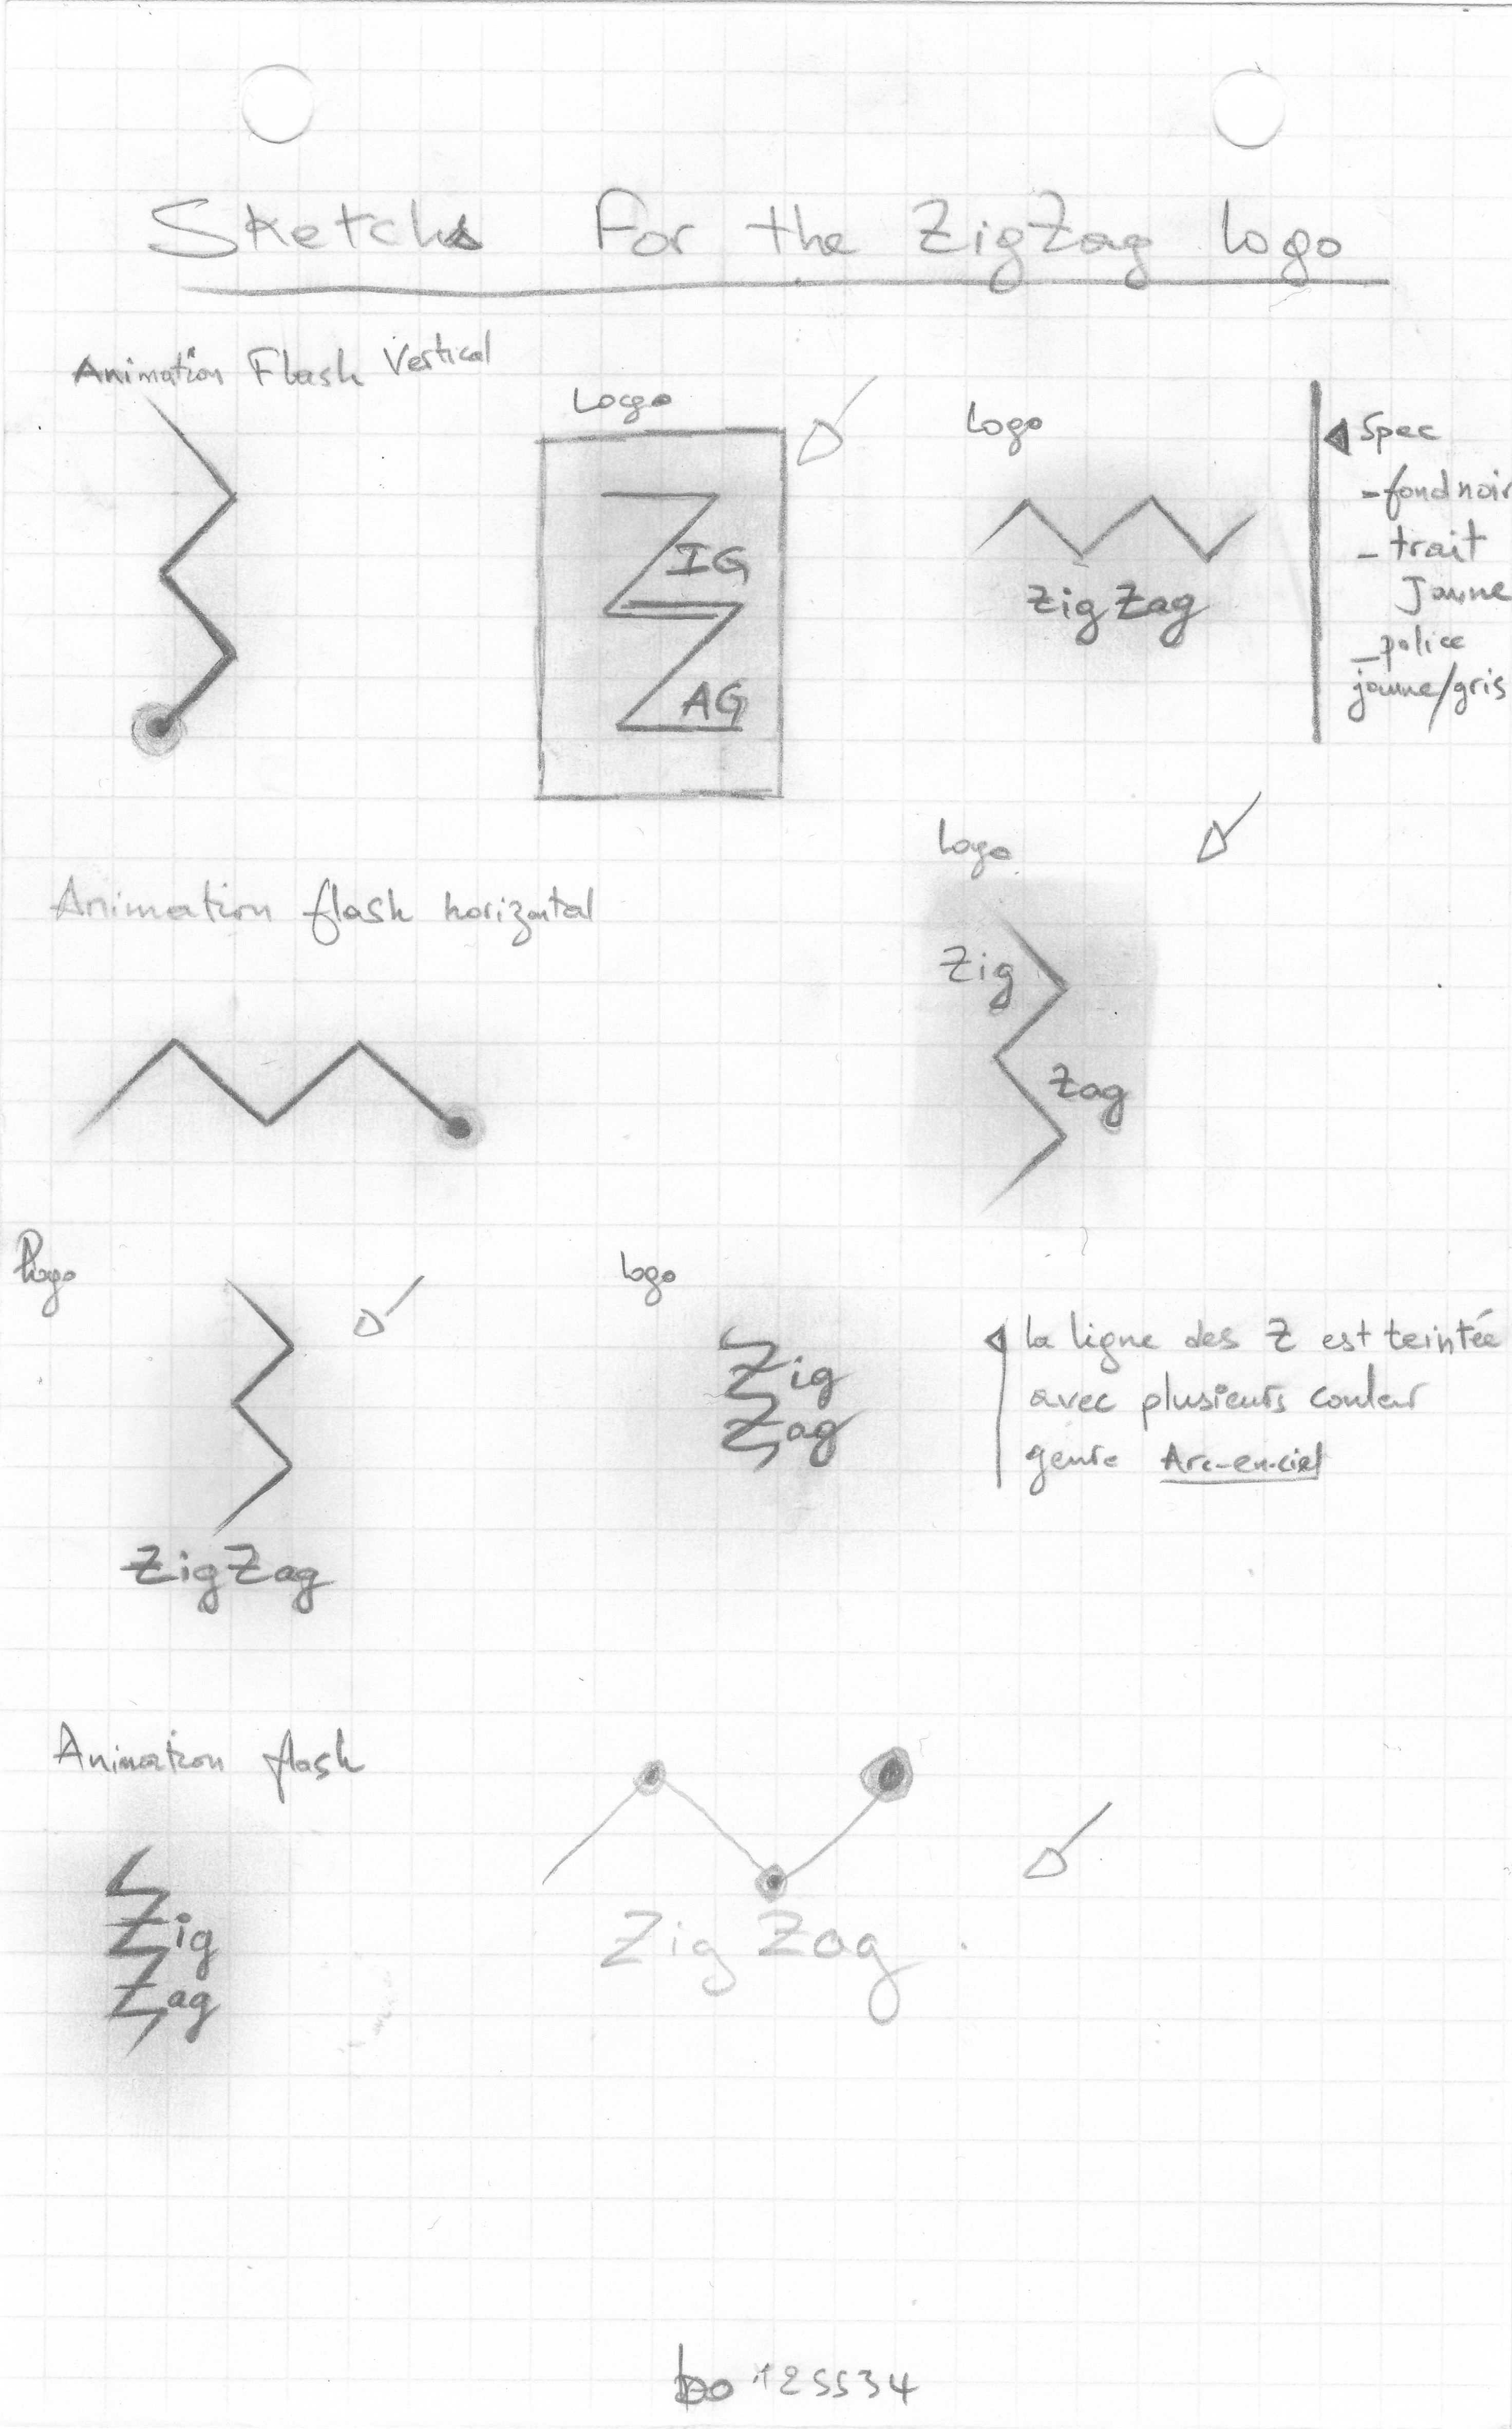 Sketchs for the ZigZag logo
Animation Flash Vertical
Logo
IG
AG
Logo
ZigZag
Spec
- fond noir
- trait
Jaune
- police
jaune/gris
Animation flash horizontal
Logo
Zig
Zag
Logo
ZigZag
Logo
Zig
Zag
la ligne des Z est teintée
avec plusieurs couleur
genre Arc-en-ciel
Animation flash
Zig
Zag
Zig Zag
125534